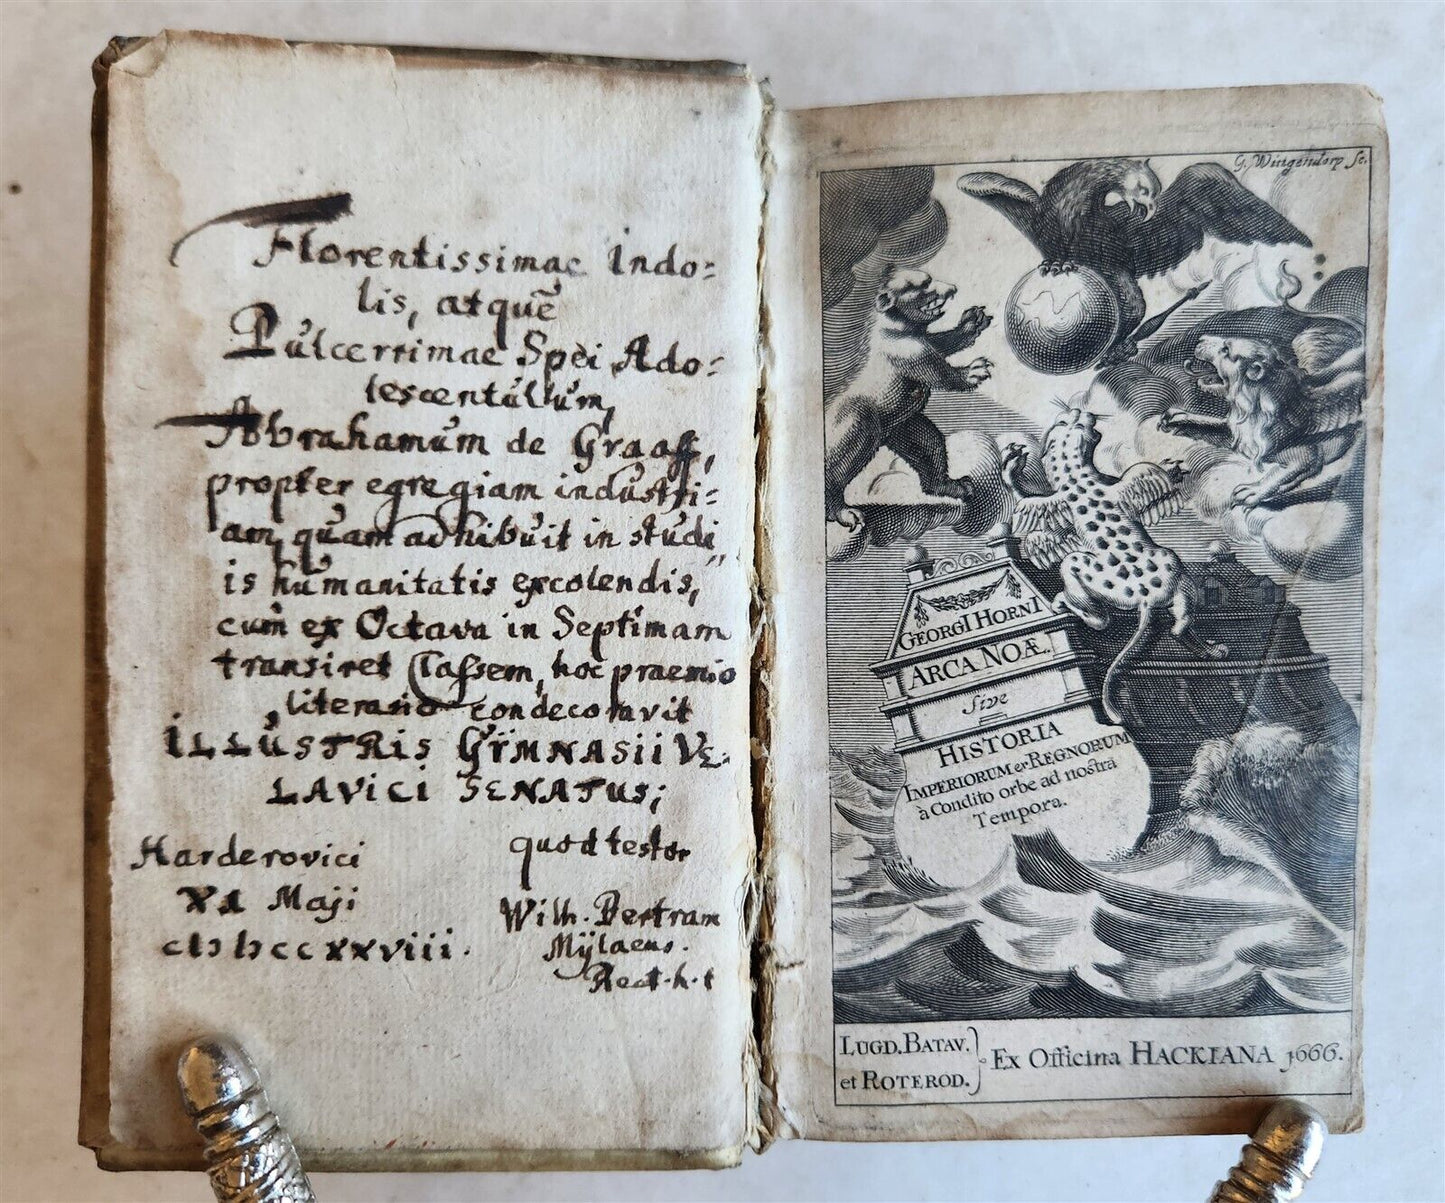 Florentissimae Indo=
lis, atquē
Pulcerrimae Spèi Ado=
lescentúlúm,
Abrahamúm de Graaff,
propter egregiam indústri=
am, quam adhibúit in studi,,
is húmanitatis excolendis,
cúm ex Octava in Septimam
transiret Classem, hoc praemio
literario condecoravit
ILLUSTRIS GÿMNASII VE=
LAVICI SENATUS;
quod testor
Harderovici
XI Maji
cIɔ Iɔcc xxviii.
Wilh. Bertram
Mÿlaeus.
Rect.h.t
G. Wingendorp Fe.
GEORGI HORNI
ARCA NOÆ.
sive
HISTORIA
IMPERIORUM et REGNORUM
à Condito orbe ad nostra
Tempora.
LUGD. BATAV.
et ROTEROD.
Ex Officina HACKIANA 1666.